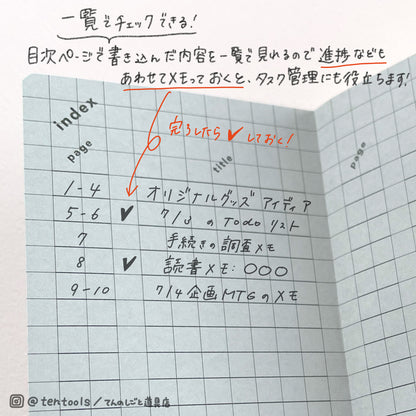 一覧でチェックできる!
目次ページで書き込んだ内容を一覧で見れるので進捗なども
あわせてメモっておくと、タスク管理にも役立ちます!
index
完了したら✔しておく!
page
title
page
1-4 オリジナルグッズ アイディア
5-6 ✔ 7/3 の Todo リスト
7 手続きの調査メモ
8 ✔ 読書メモ: ○○○
9-10 7/4 企画MTGのメモ
@tentools/てんのしごと道具店